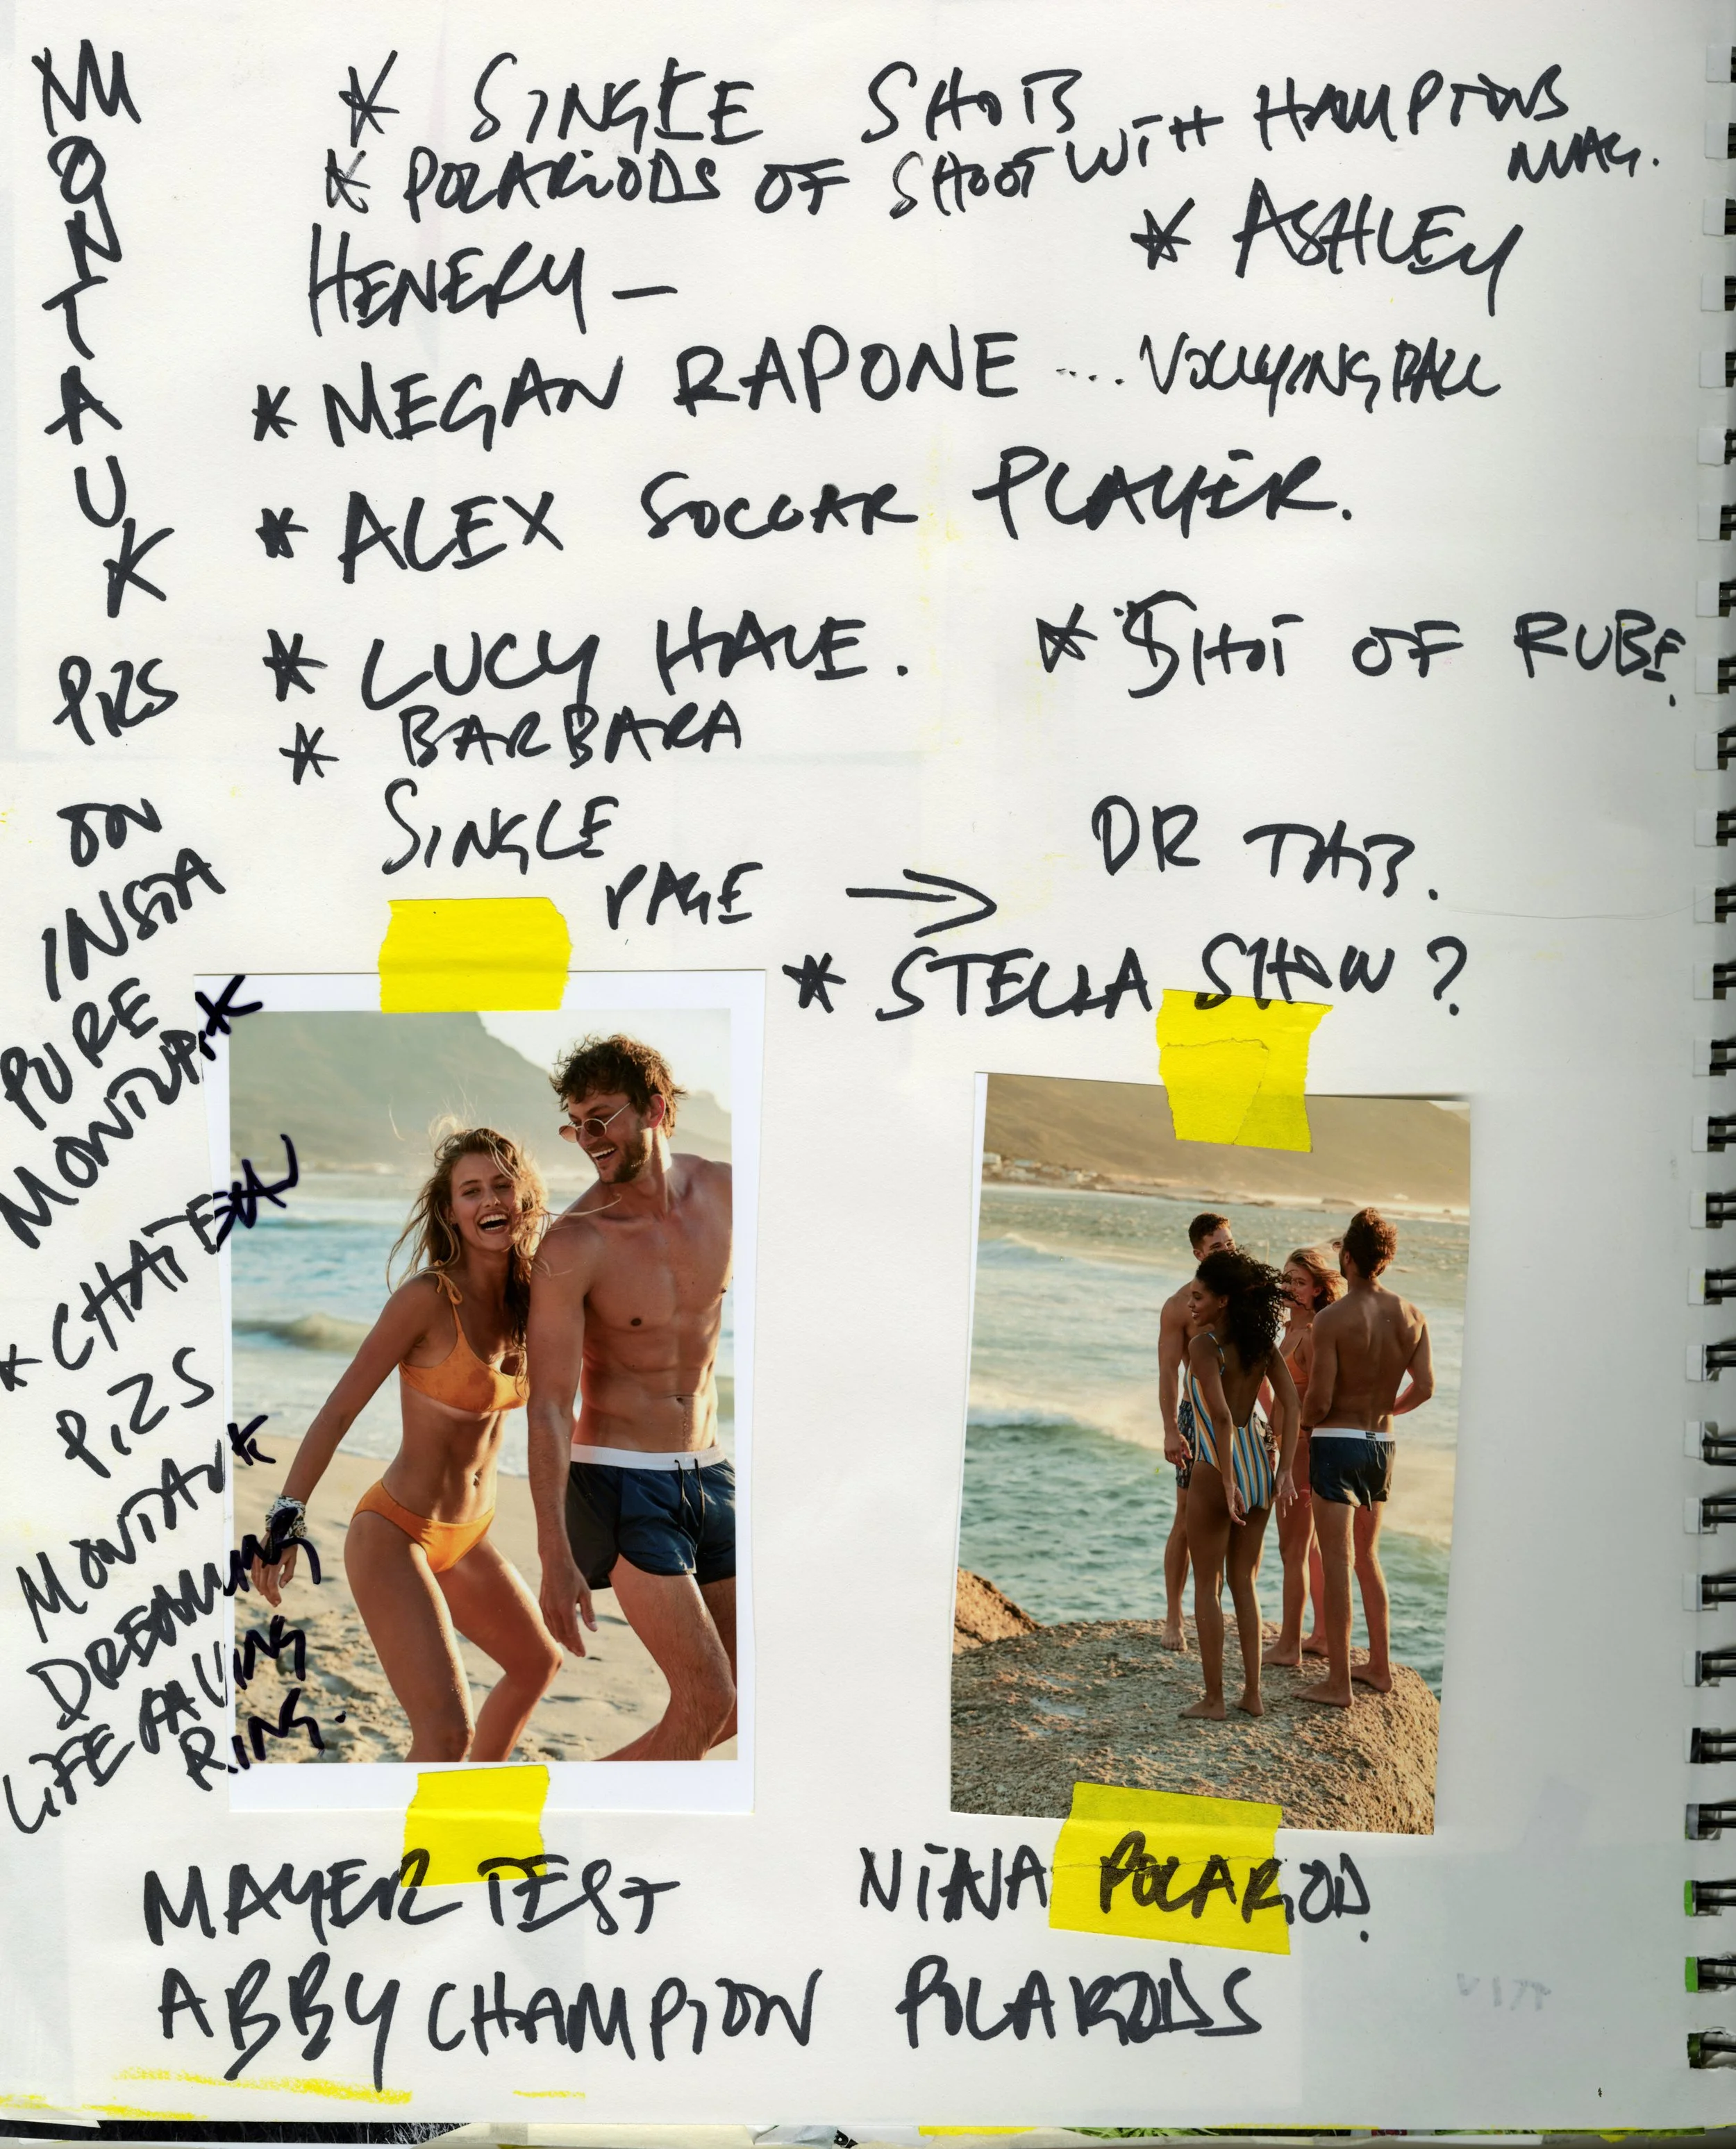 MONTAUK
PICS
ON
INSTA
PURE
MONTAUK
* CHATEAU
PICS
MONTAUK
DREAMING
LIFE SAVING
RING.
* SINGLE SHOTS
* POLARIODS OF SHOOT WITH HAMPTONS
MAG.
HENERY –
* ASHLEY
* MEGAN RAPONE .... VOLLYING BALL
* ALEX SOCCAR PLAYER.
* LUCY HALE.
* SHOT OF RUBE.
* BARBARA
SINGLE
PAGE →
DR TATTS.
* STELLA SHOW ?
MAYER TEST
NINA POLARIOD.
ABBY CHAMPION POLARIODS